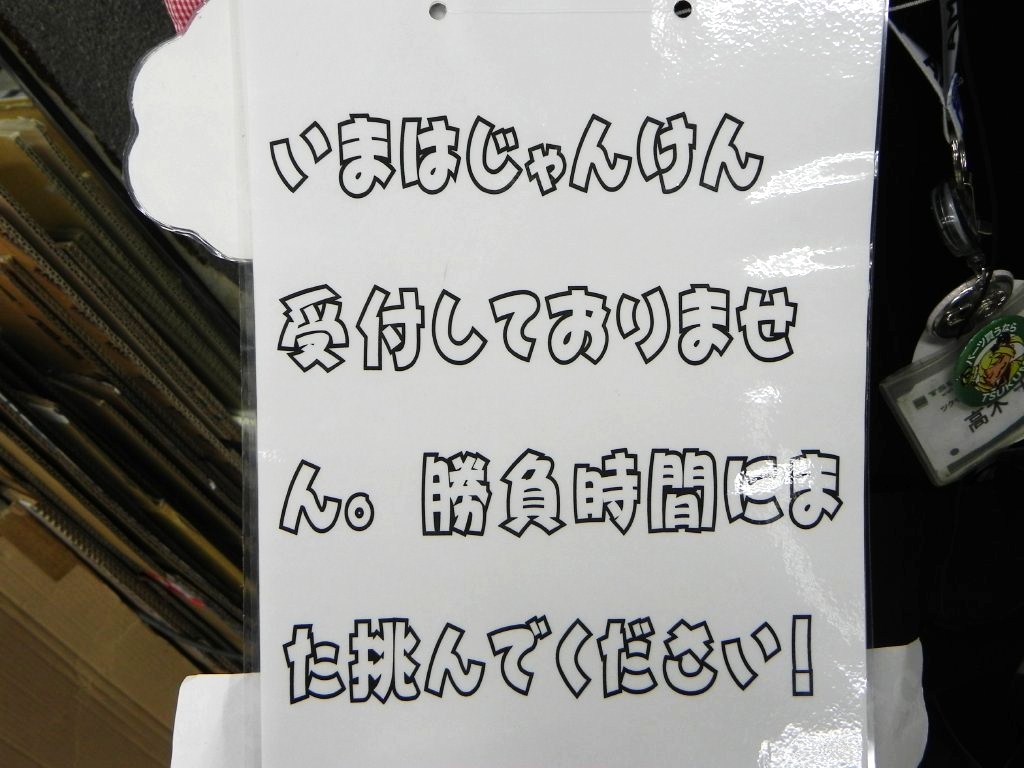 いまはじゃんけん
受付しておりませ
ん。勝負時間にま
た挑んでください!
パーツ買うなら
TSUKU
高木